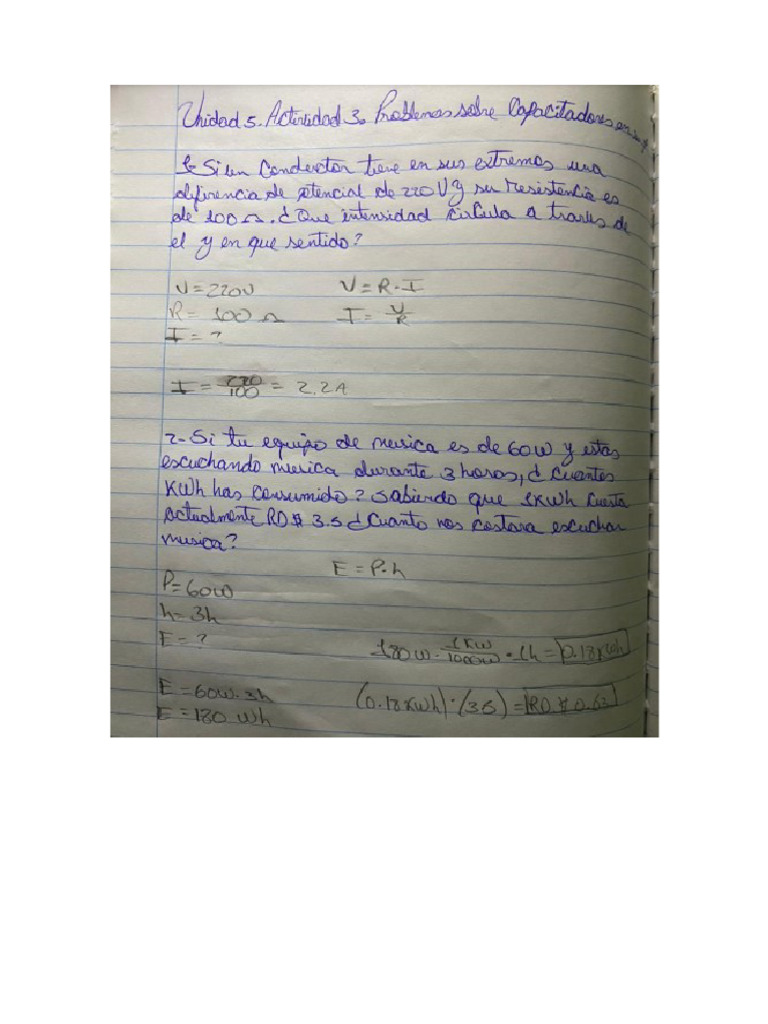 Unidad 5. Actividad 3. Problemas sobre Capacitadores
1- Si un Conductor tiene en sus extremos una
diferencia de potencial de 220 V y su resistencia es
de 100 Ω. ¿Que intensidad circula a traves de
el y en que sentido?
V = 220V V = R · I
R = 100 Ω I = V/R
I = ?
I = 220/100 = 2.2A
2- Si tu equipo de musica es de 60W y estas
escuchando musica durante 3 horas, ¿Cuantos
KWh has consumido? Sabiendo que 1KWh cuesta
actualmente RD$ 3.5 ¿Cuanto nos costara escuchar
musica?
E = P·h
P = 60W
h = 3h
E = ?
180W · 1KW/1000W · 1h = 0.18KWh
E = 60W · 3h
(0.18KWh) · (3.5) = RD$ 0.63
E = 180 Wh